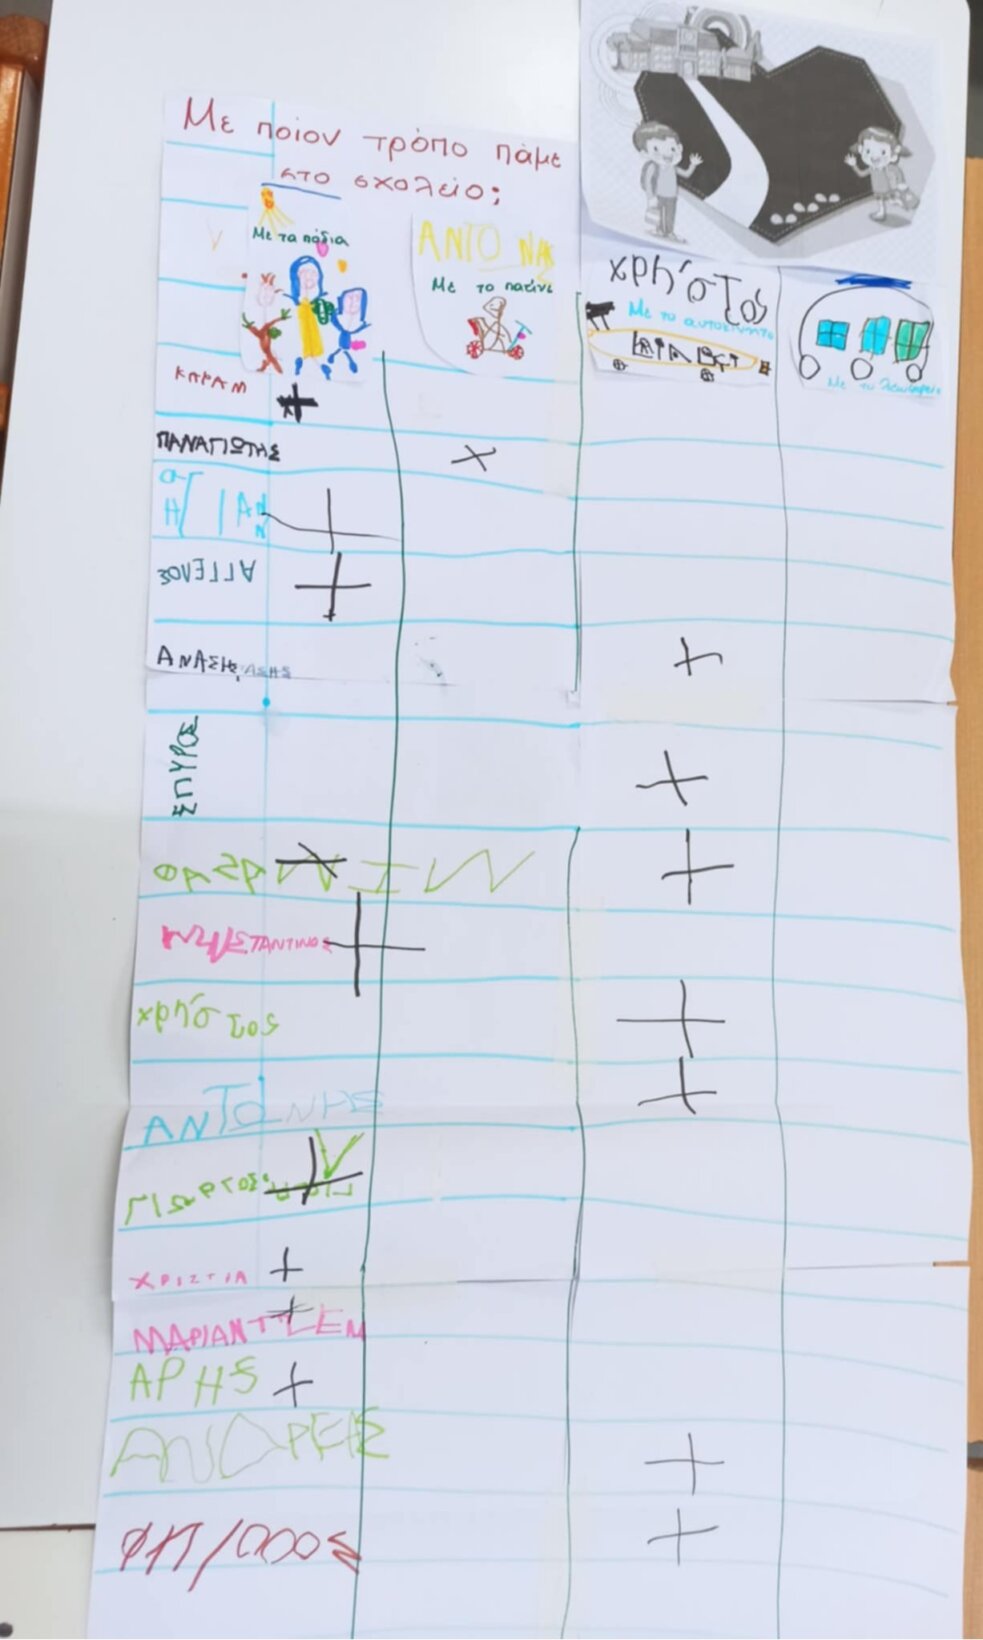 Με ποιον τρόπο πάμε
στο σχολείο;
Με τα πόδια
ΑΝΤΟ ΝΗΣ
Με το πατίνι
χρήστος
Με το αυτοκίνητο
Με το λεωφορείο
ΚΑΡΑΜ
ΠΑΝΑΓΙΩΤΗΣ
ΑΓΓΕΛΟΣ
ΣΠΥΡΟΣ
ΤΑΝΤΙΝΟΣ
χρήστος
ΑΝΤΩΝΗΣ
ΓΙΩΡΓΟΣ
ΧΡΙΣΤΙΑ
ΜΑΡΙΑΝΤ ΛΕΜ
ΑΡΗΣ
ΑΝΔΡΕΑΣ